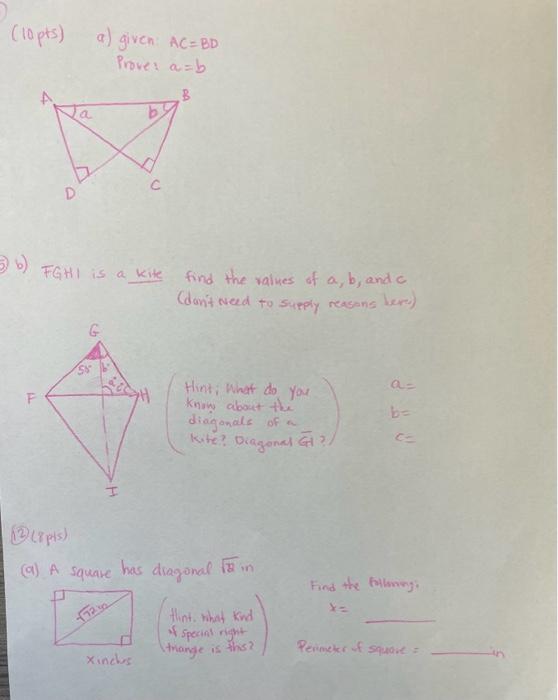 (10pts) a) given: AC=BD
Prove: a=b
A
B
a
b
D
C
b) FGHI is a kite find the values of a, b, and c
(don't need to supply reasons here)
G
b°
a°
c°
F
H
I
(Hint; What do you
know about the
diagonals of a
kite? Diagonal GI?)
a=
b=
c=
12 (8pts)
(a) A square has diagonal in
Find the following:
x=
(Hint. What kind
of special right
triangle is this?)
√72 in
x inches
Perimeter of square = in